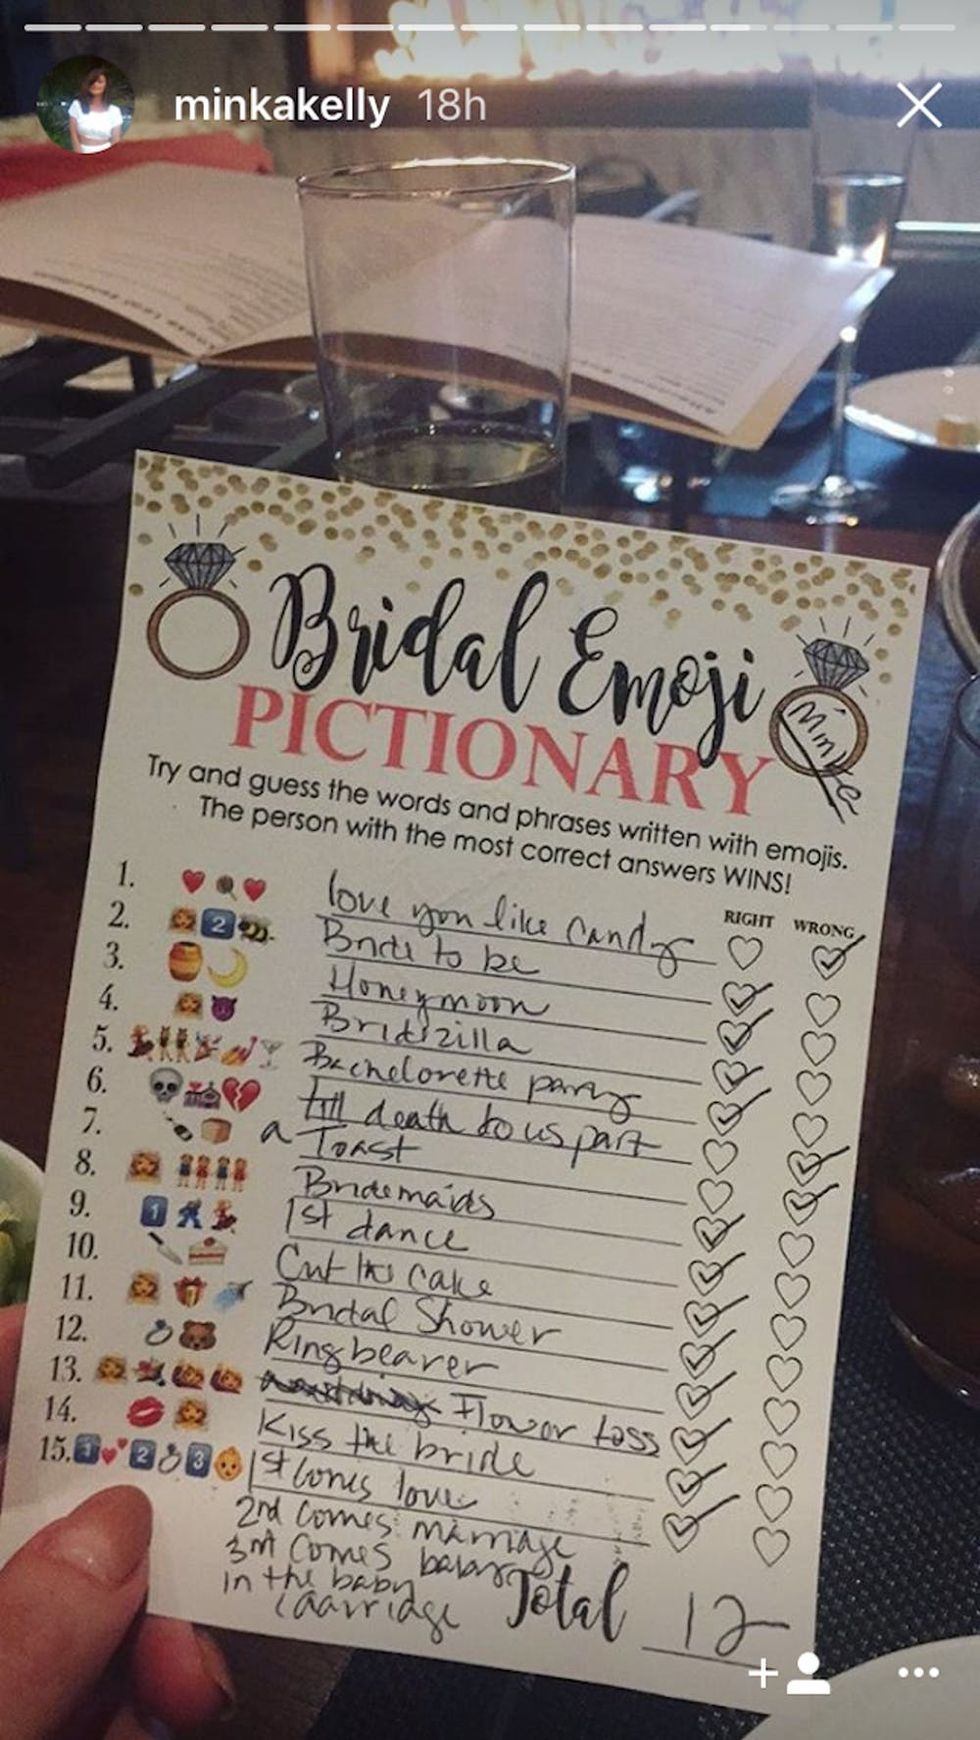 minkakelly 18h
Bridal Emoji
PICTIONARY
Minka
Try and guess the words and phrases written with emojis.
The person with the most correct answers WINS!
RIGHT WRONG
1. love you like candy
2. 2 Bride to be
3. Honeymoon
4. Bridezilla
5. Bachelorette party
6. till death do us part
7. a Toast
8. Bridemaids
9. 1 1st dance
10. Cut the cake
11. Bridal Shower
12. Ring bearer
13. Flower toss
14. Kiss the bride
15. 1 2 3 1st comes love
2nd comes marriage
3rd comes baby
in the baby
caarriage
Total 12